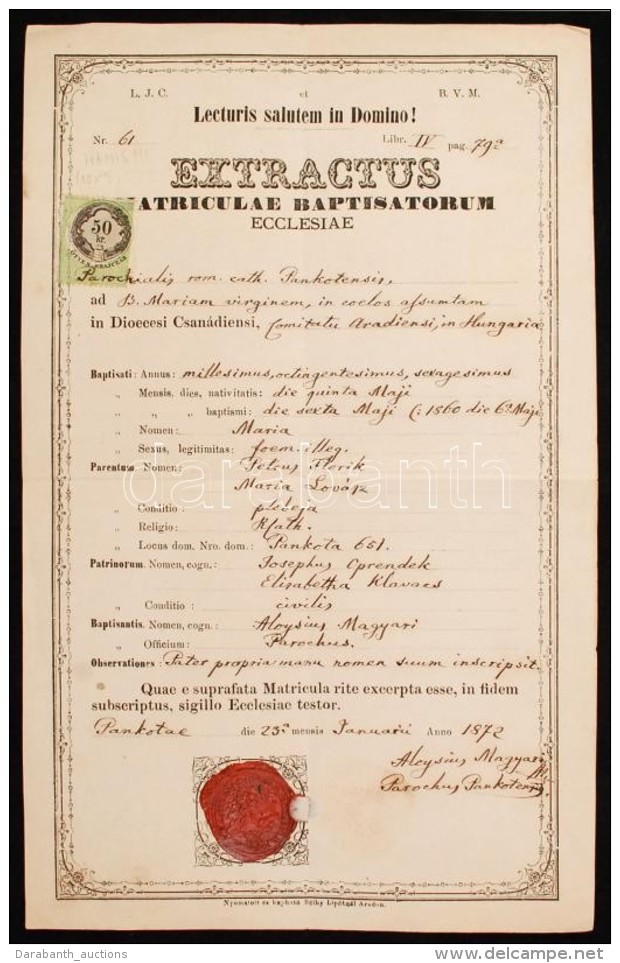 L. J. C. et B. V. M.
Lecturis salutem in Domino!
Nr. 61 Libr. IV pag. 79a
EXTRACTUS
MATRICULAE BAPTISATORUM
ECCLESIAE
50
kr.
Parochialis rom. cath. Pankotensis,
ad B. Mariam virginem, in coelos assumtam
in Dioecesi Csanádiensi, Comitatu Aradiensi, in Hungaria
Baptisati: Annus: millesimus, octingentesimus, sexagesimus
„ Mensis. dies, nativitatis: die quinta Maji
„ „ „ baptismi: die sexta Maji (: 1860 die 6a Maji
„ Nomen: Maria
„ Sexus, legitimitas: foem. illeg.
Parentum Nomen: Petrus Florik
Maria Lovász
„ Conditio: plebeja
„ Religio: Rkath.
„ Locus dom. Nro. dom.: Pankota 651.
Patrinorum. Nomen, cogn.: Josephus Oprendek
Elisabetha Klavacs
„ Conditio: civilis
Baptisantis. Nomen, cogn.: Aloysius Magyari
„ Officium: Parochus.
Observationes: Pater propria manu nomen suum inscripsit.
Quae e suprafata Matricula rite excerpta esse, in fidem
subscriptus, sigillo Ecclesiae testor.
Pankotae die 23a mensis Januarii Anno 1872
Aloysius Magyari
Parochus Pankotensis
Nyomatott és kapható Réthy Lipótnál Aradon.
darabanth
Darabanth_auctions
delcampe.net